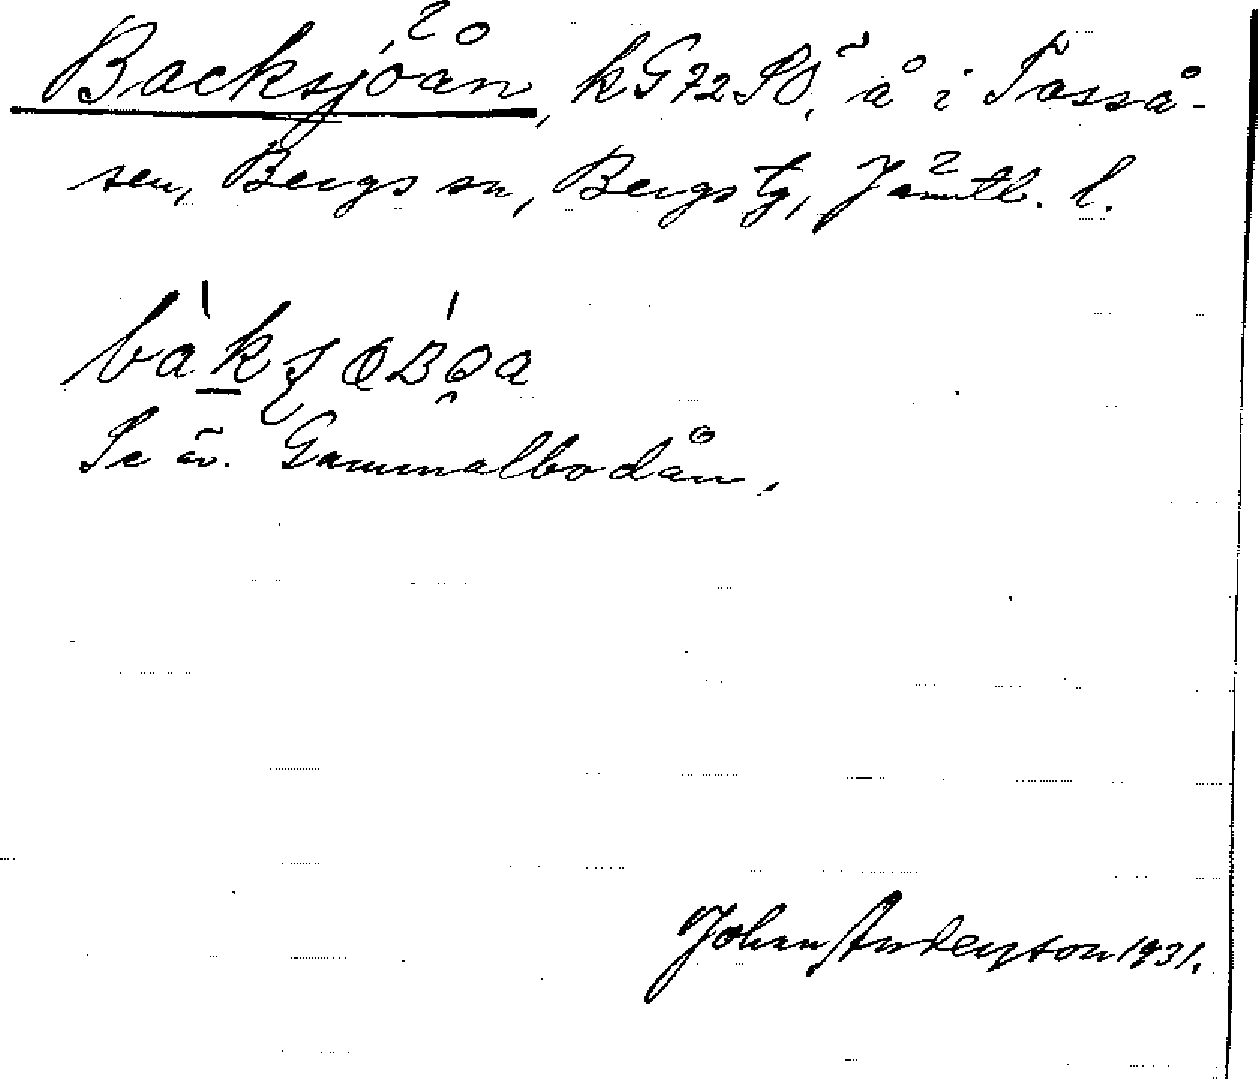 Backsjöån, kG72SÖ, å i Tosså-
sen, Bergs sn, Bergs tg, Jämtl. l.
Se äv. Gammalbodån.
Johan Andersson 1931.